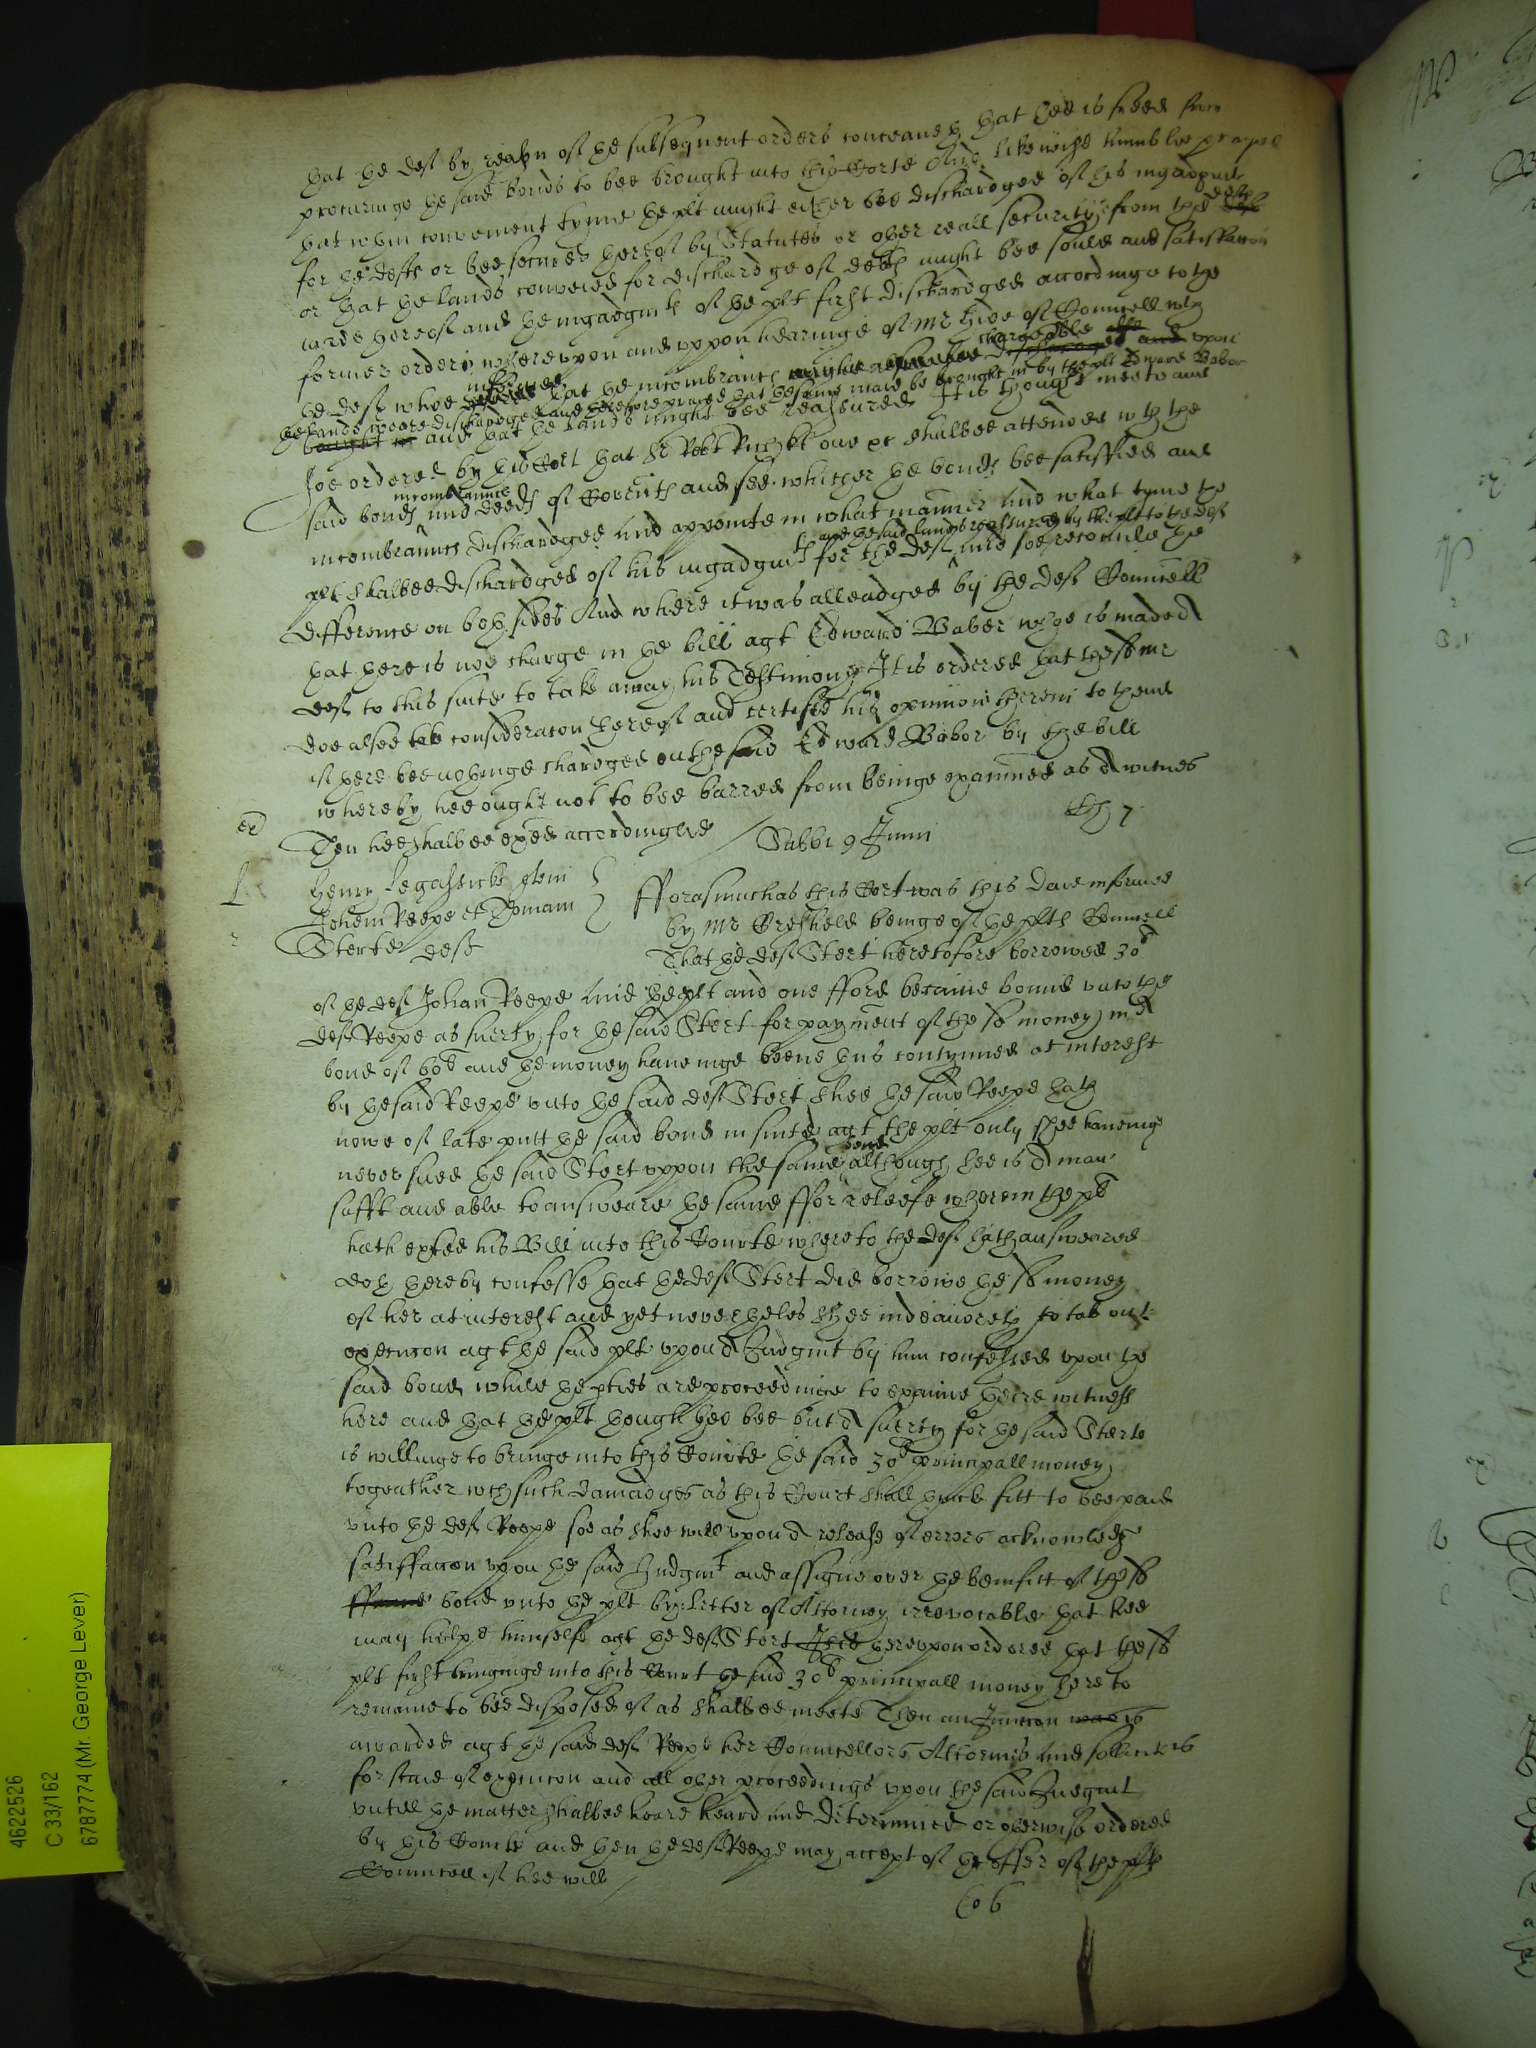 that the deft by reason of the subsequent orders conceaveth that hee is freed from
procuringe the said bonds to bee brought into this Corte And likewise humblie prayed
that in convenient tyme the plt might either bee dischardged of his ingadgmts
for the defts or bee secured thereof by Statutes or other reall security from the
or that the lands conveied for dischardge of debts might bee sould and satisfaccon
made thereof and the ingadgmts of the plt first dischardged accordinge to the
former orders wherevpon and vppon hearinge of Mr Hide of Councell wth
the deft whoe informed that the incombrancs chargeable vpon
the lands weare dischardged and therefore prayed that the same maie be brought in by the plt Edward Baber
and that the lands might bee reassured It is thought meete and
soe ordered by this Cort that Sr Robt Rich kt one &c shalbee attended wth the
said bonds incombrance and deeds of Covents and see whither the bonds bee satisfied and
incombrancs dischardged and appointe in what manner and what tyme the
plt shalbee dischardged of his ingadgmts for the deft and the said lands reassured by the plt to the deft and soe reconcile the
difference on both sides And where it was alleadged by the deft Councell
that there is noe charge in the bill agt Edward Baber whoe is made a
deft to this suite to take away his Testimony It is ordered that the sd Mr
doe alsoe take consideracon thereof and certifie his opinion therein to them
if there bee nothinge chardged on the said Edward Babor by the bill
whereby hee ought not to bee barred from beinge examined as a witnes
Then hee shalbee exed accordinglie
Sabbi 9 Junii
Henry Legassicke plt
Johem Reepe et Thomam
Sterte deft
fforasmuch as this Cort was this daie informed
by Mr Gresheld beinge of the plts Councell
That the deft Stert heretofore borrowed 30l
of the deft Johan Reepe And the plt and one fford became bound vnto the
deft Reepe as suerty for the said Stert for payment of the sd money in a
bond of 60l and the money haveinge beene thus contynued at interest
by the said Reepe vnto the said deft Stert shee the said Reepe hath
nowe of late putt the said bond in suite agt the plt only shee haveinge
never sued the said Stert vppon the same bond although hee is a man
sufft and able to answeare the same ffor releefe wherein the plt
hath exted his Bill into this Courte whereto the deft hath answeared
doth thereby confesse that the deft Stert did borrowe the sd money
of her at interest and yet nevertheles shee indeavoreth to take out
execucon agt the said plt vpon a Judgmt by him confessed vpon the
said bond while the pties are proceedinge to examine theire witness
here and that the plt though hee bee but a suerty for the said Sterte
is willinge to bringe into this Courte the said 30l principall money
togeather wth such damadges as this Court shall thinke fitt to bee paid
vnto the deft Reepe soe as shee will vpon a release of errors acknowledge
satisfaccon vpon the said Judgmt and assigne over the benifitt of the sd
bond vnto the plt by Letter of Attorney irrevocable that hee
may helpe himselfe agt the deft Stert It is therevpon ordered that the sd
plt first bringinge into this Court the said 30l principall money here to
remaine to bee disposed of as shalbee meete Then an Junccon is
awarded agt the said deft Reepe her Councellors Attornies and sollicitrs
for staie of execucon and all other proceedings vpon the said Judgmt
vntill the matter shalbee heare heard and determined or otherwise ordered
by this Courte and then the deft Reepe may accept of the offer of the plts
Councell if hee will
4622526
C 33/162
6787774 (Mr. George Lever)